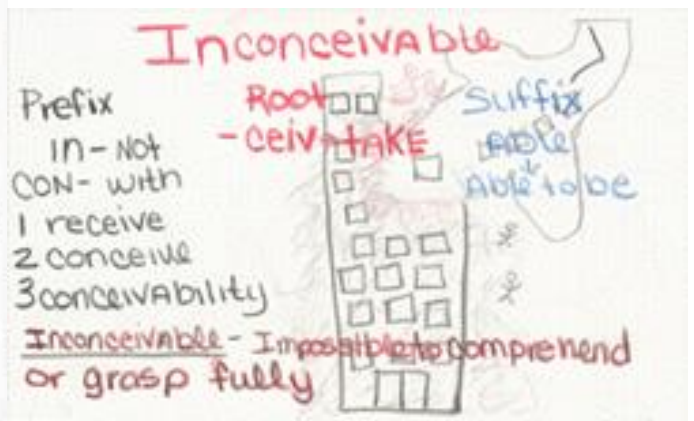 InconceivAble
Prefix
in - Not
CON - with
1 receive
2 conceive
3 conceivAbility
Root
- ceiv - tAKE
Suffix
Able
Able to be
InconceivAble - Impossible to comprehend
or grasp fully